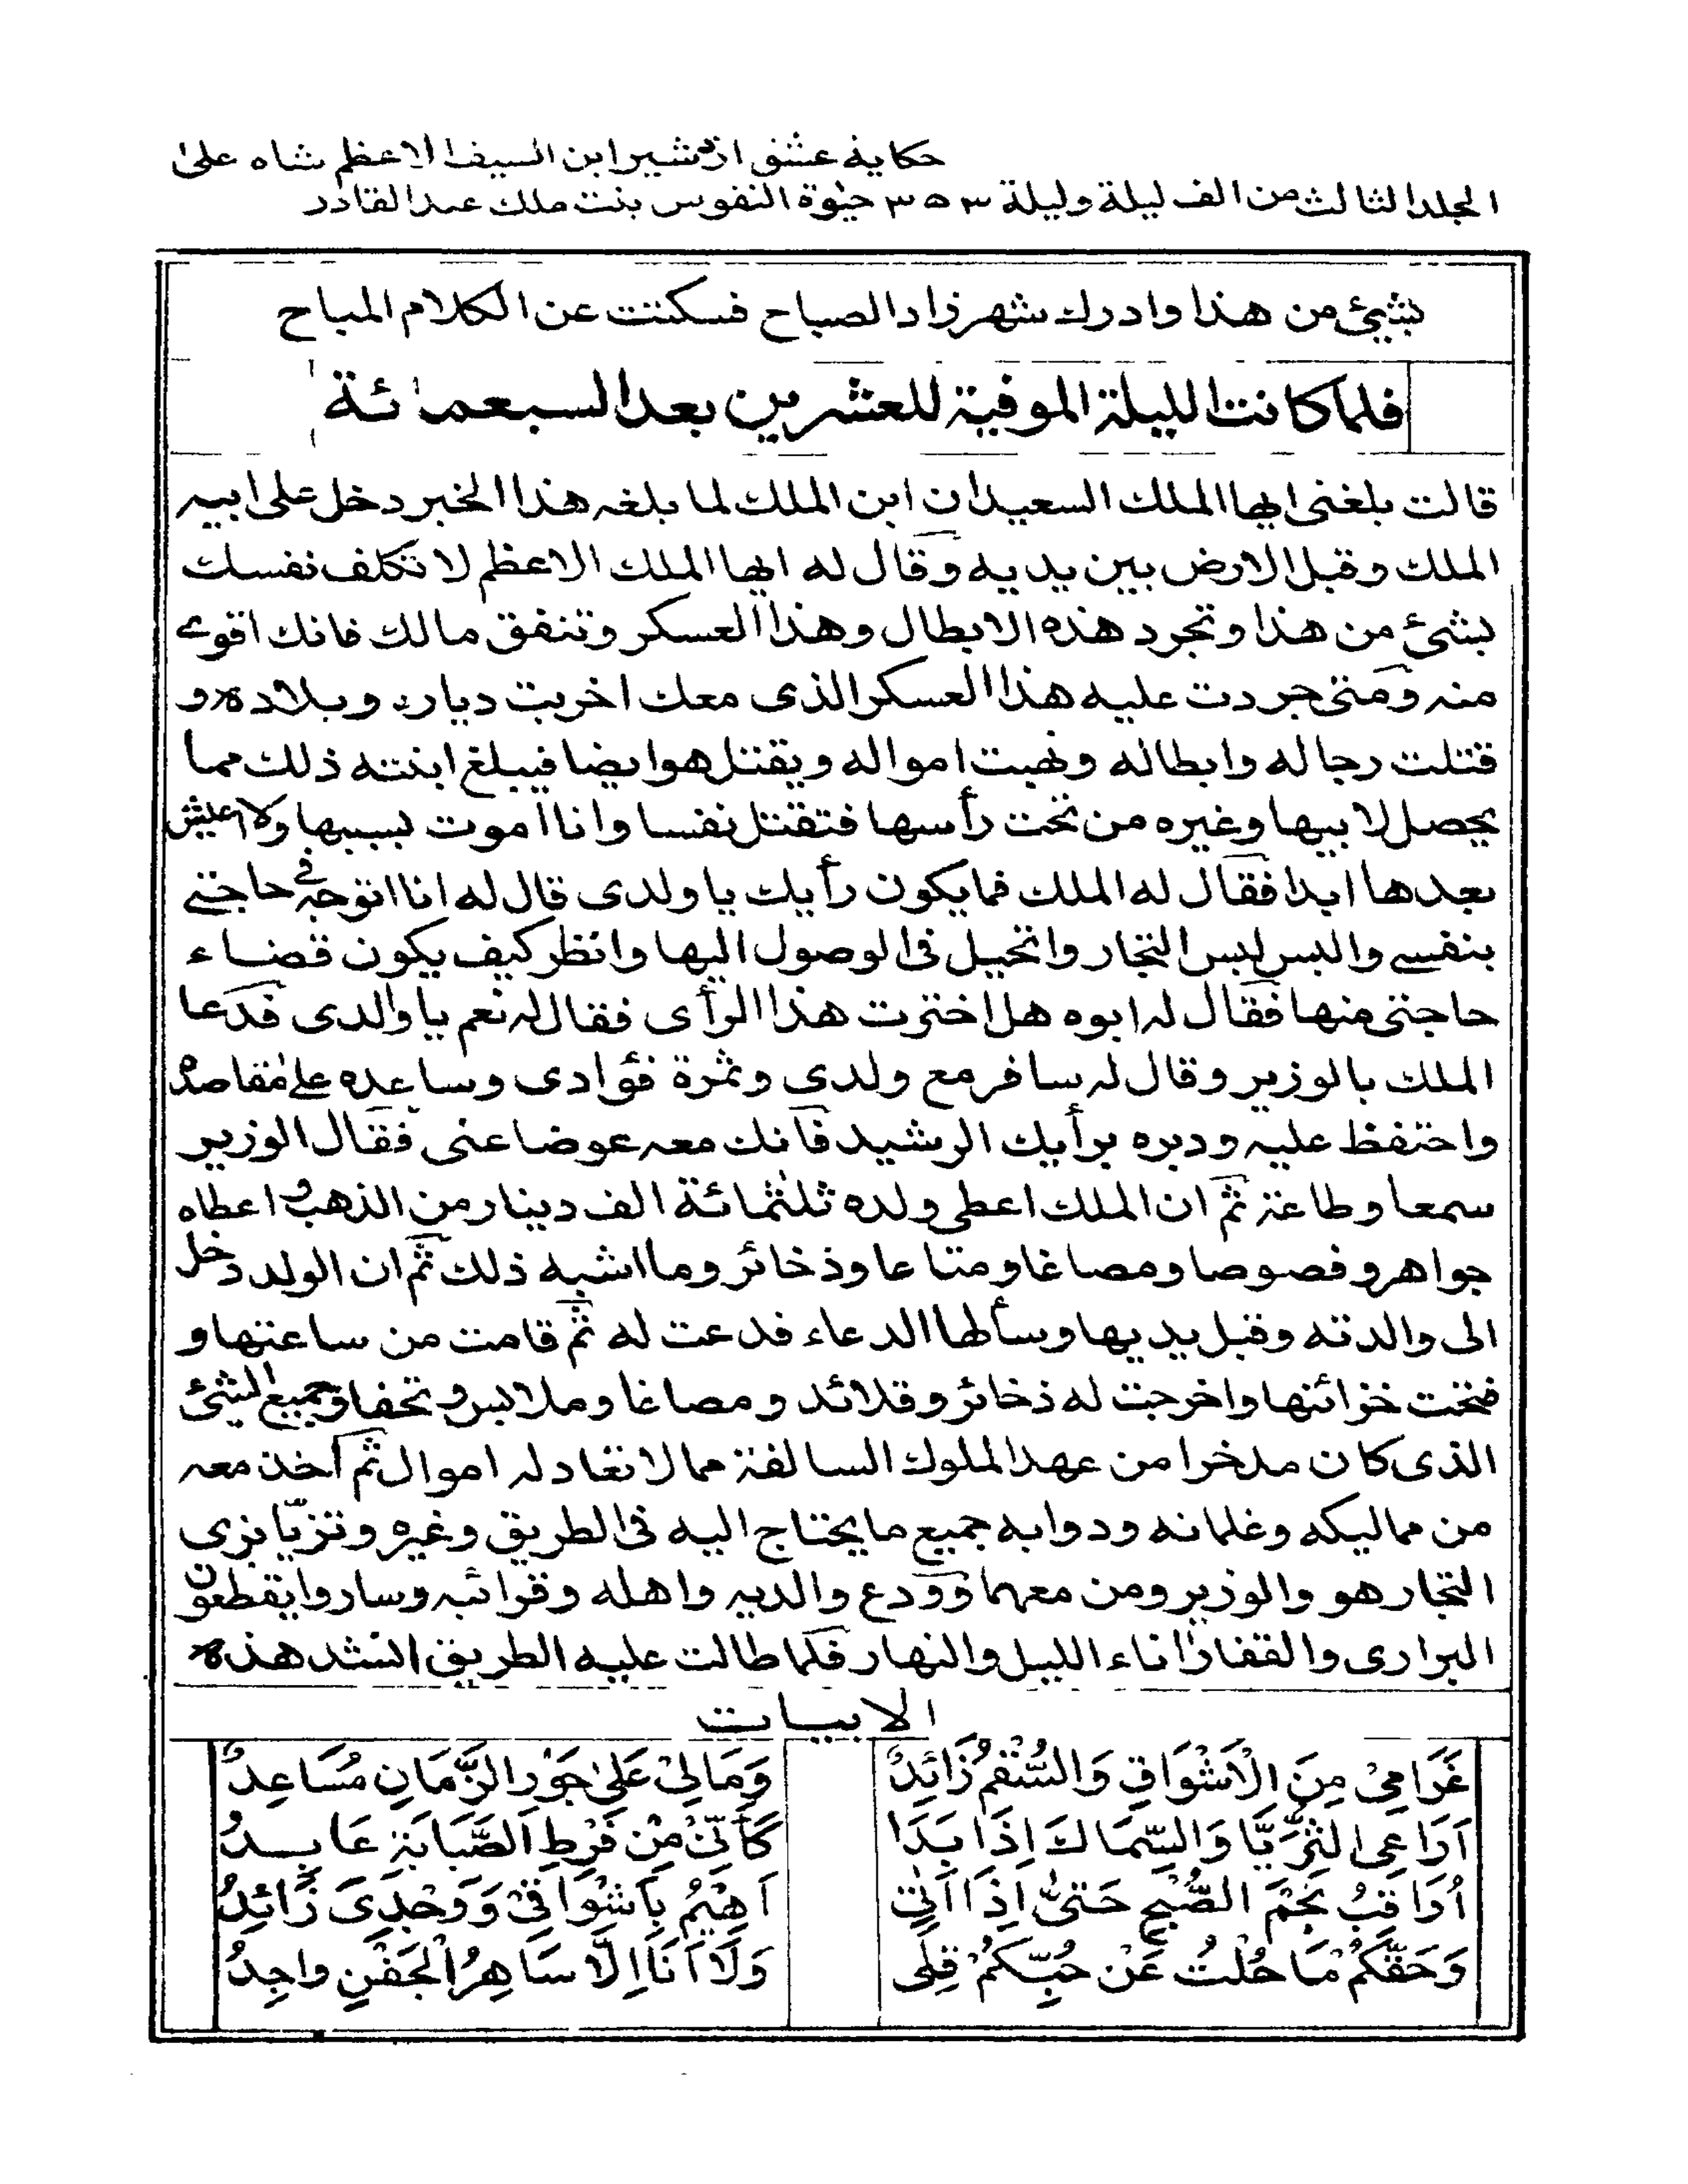 حكاية عشق اردشير ابن السيف الاعظم شاه على
الجلد الثالث من الف ليلة وليلة ٣٥٣ حيٰوة النفوس بنت ملك عبد القادر
بشيئ من هذا وادرك شهرزاد الصباح فسكتت عن الكلام المباح
فلما كانت الليلة الموفية للعشرين بعد السبعمائة
قالت بلغنى ايها الملك السعيد ان ابن الملك لما بلغه هذا الخبر دخل على ابيه
الملك وقبل الارض بين يديه وقال له ايها الملك الاعظم لا تكلف نفسك
بشئ من هذا وتجرد هذه الابطال وهذا العسكر وتنفق مالك فانك اقوے
منه ومتى جردت عليه هذا العسكر الذى معك اخربت دياره وبلاده و
قتلت رجاله وابطاله ونهبت امواله ويقتل هو ايضا فيبلغ ابنته ذلك مما
يحصل لابيها وغيره من تحت رأسها فتقتل نفسا وانا اموت بسببها ولا اعيش
بعدها ابدا فقال له الملك فما يكون رأيك يا ولدى قال له انا اتوجه فى حاجتے
بنفسے والبس لبس التجار واتحيل فى الوصول اليها وانظر كيف يكون قضاء
حاجتى منها فقال له ابوه هل اخترت هذا الرأى فقال له نعم يا والدى فدعا
الملك بالوزير وقال له سافر مع ولدي وثمرة فؤادى وساعده على مقاصده
واحتفظ عليه ودبره برأيك الرشيد فانك معه عوضا عنى فقال الوزير
سمعا وطاعة ثم ان الملك اعطى ولده ثلٰثمائة الف دينار من الذهب و اعطاه
جواهر وفصوصا ومصاغا ومتاعا وذخائر وما اشبه ذلك ثم ان الولد دخل
الى والدته وقبل يديها وسألها الدعاء فدعت له ثم قامت من ساعتها و
فتحت خزائنها واخرجت له ذخائر وقلائد ومصاغا وملابس و تحفا وجميع الشئ
الذى كان مدخرا من عهد الملوك السالفة مما لا تعادله اموال ثم أخذ معه
من مماليكه وغلمانه ودوابه جميع ما يحتاج اليه فى الطريق وغيره وتزيّا بزى
التجار هو والوزير ومن معهما وودع والديه واهله وقرائبه وساروا يقطعون
البرارى والقفار اٰناء الليل والنهار فلما طالت عليه الطريق انشد هذه
الابيات
غَرَامِىْ مِنَ الْاَشْوَاقِ وَالسُّقْمُ زَائِدٌ وَمَالِىْ عَلٰى جَوْرِ الزَّمَانِ مُسَاعِدٌ
اَرَاعِى الثُّرَيَّا وَالسِّمَاكَ اِذَا بَدَا كَأَنِّىْ مِنْ فَرْطِ الصَّبَابَةِ عَابِدُ
اُرَاقِبُ نَجْمَ الصُّبْحِ حَتىّٰ اِذَا اَتٰى اَهِيْمُ بِاَشْوَاقِىْ وَوَجْدِىَ زَائِدُ
وَحَقِّكُمْ مَا حُلْتُ عَنْ حُبِّكُمْ قِلًى وَلَا اَنَا اِلَّا سَاهِرُ الْجَفْنِ واجِدُ